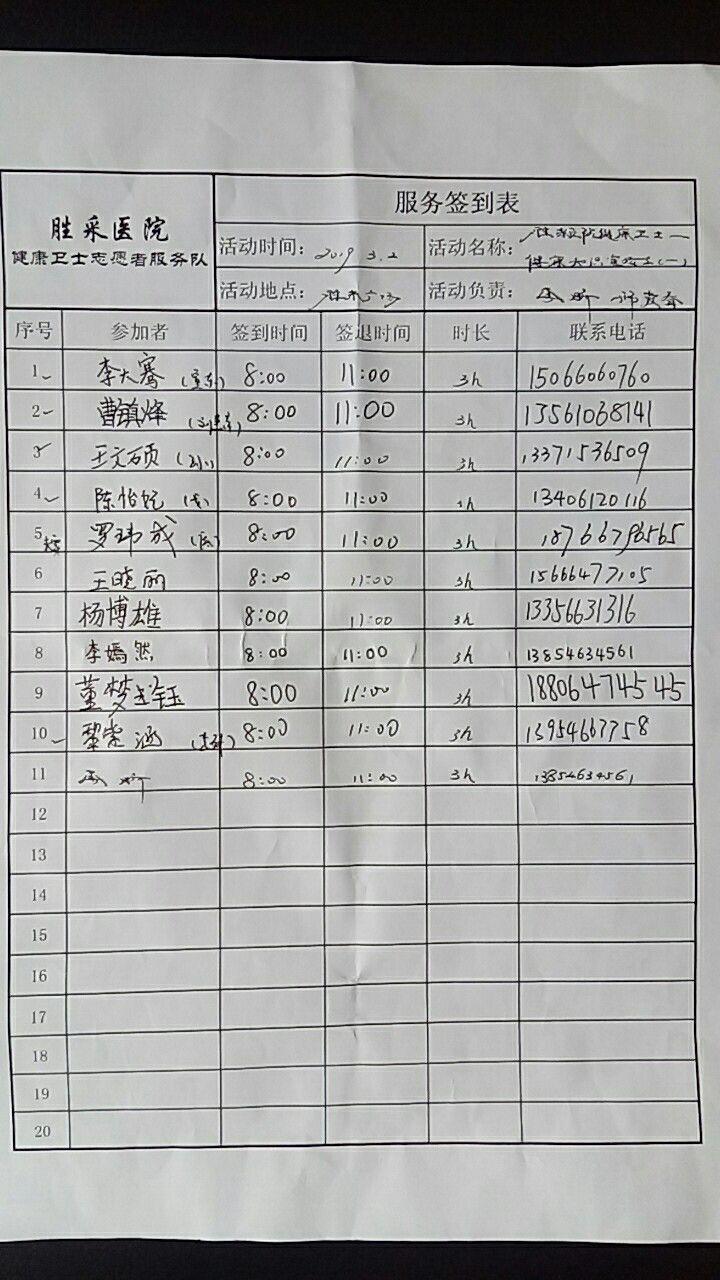 胜采医院
健康卫士志愿者服务队
服务签到表
活动时间：2019 3.2 活动名称：
活动地点： 活动负责：
序号 参加者 签到时间 签退时间 时长 联系电话
1 李大骞 8:00 11:00 3h 15066060760
2 曹镇烽 8:00 11:00 3h 13561068141
3 王文硕 8:00 11:00 3h 13371536509
4 陈怡 8:00 11:00 3h 13406120116
5 罗玮成 8:00 11:00 3h 18766796565
6 王晓丽 8:00 11:00 3h 15666477105
7 杨博雄 8:00 11:00 3h 13356631316
8 李嫣然 8:00 11:00 3h 13854634561
9 董梦钰 8:00 11:00 3h 18806474545
10 黎 涵 8:00 11:00 3h 13954667758
11 8:00 11:00 3h 13854634561
12
13
14
15
16
17
18
19
20